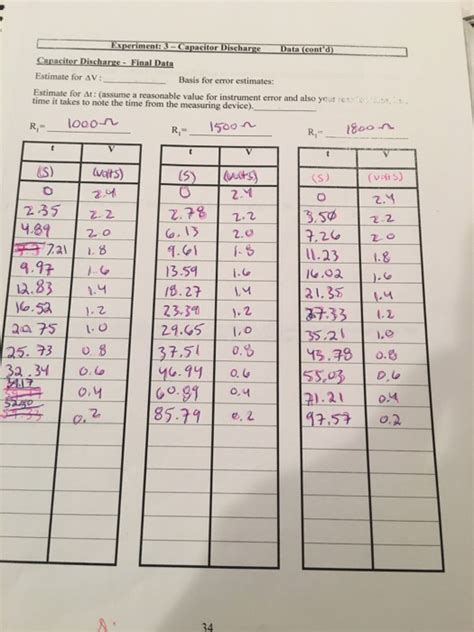 Experiment: 3 – Capacitor Discharge Data (cont'd)
Capacitor Discharge - Final Data
Estimate for ΔV: Basis for error estimates:
Estimate for Δt: (assume a reasonable value for instrument error and also your
time it takes to note the time from the measuring device).
R₁= 1000 Ω R₁= 1500 Ω R₁= 1800 Ω
t V t V t V
(S) (volts) (S) (volts) (S) (volts)
0 2.4 0 2.4 0 2.4
2.35 2.2 2.78 2.2 3.50 2.2
4.89 2.0 6.13 2.0 7.26 2.0
7.21 1.8 9.61 1.8 11.23 1.8
9.97 1.6 13.59 1.6 16.02 1.6
12.83 1.4 18.27 1.4 21.35 1.4
16.52 1.2 23.39 1.2 27.33 1.2
20.75 1.0 29.65 1.0 35.21 1.0
25.73 0.8 37.51 0.8 43.78 0.8
32.34 0.6 46.94 0.6 55.03 0.6
0.4 60.89 0.4 71.21 0.4
0.2 85.79 0.2 97.57 0.2
34